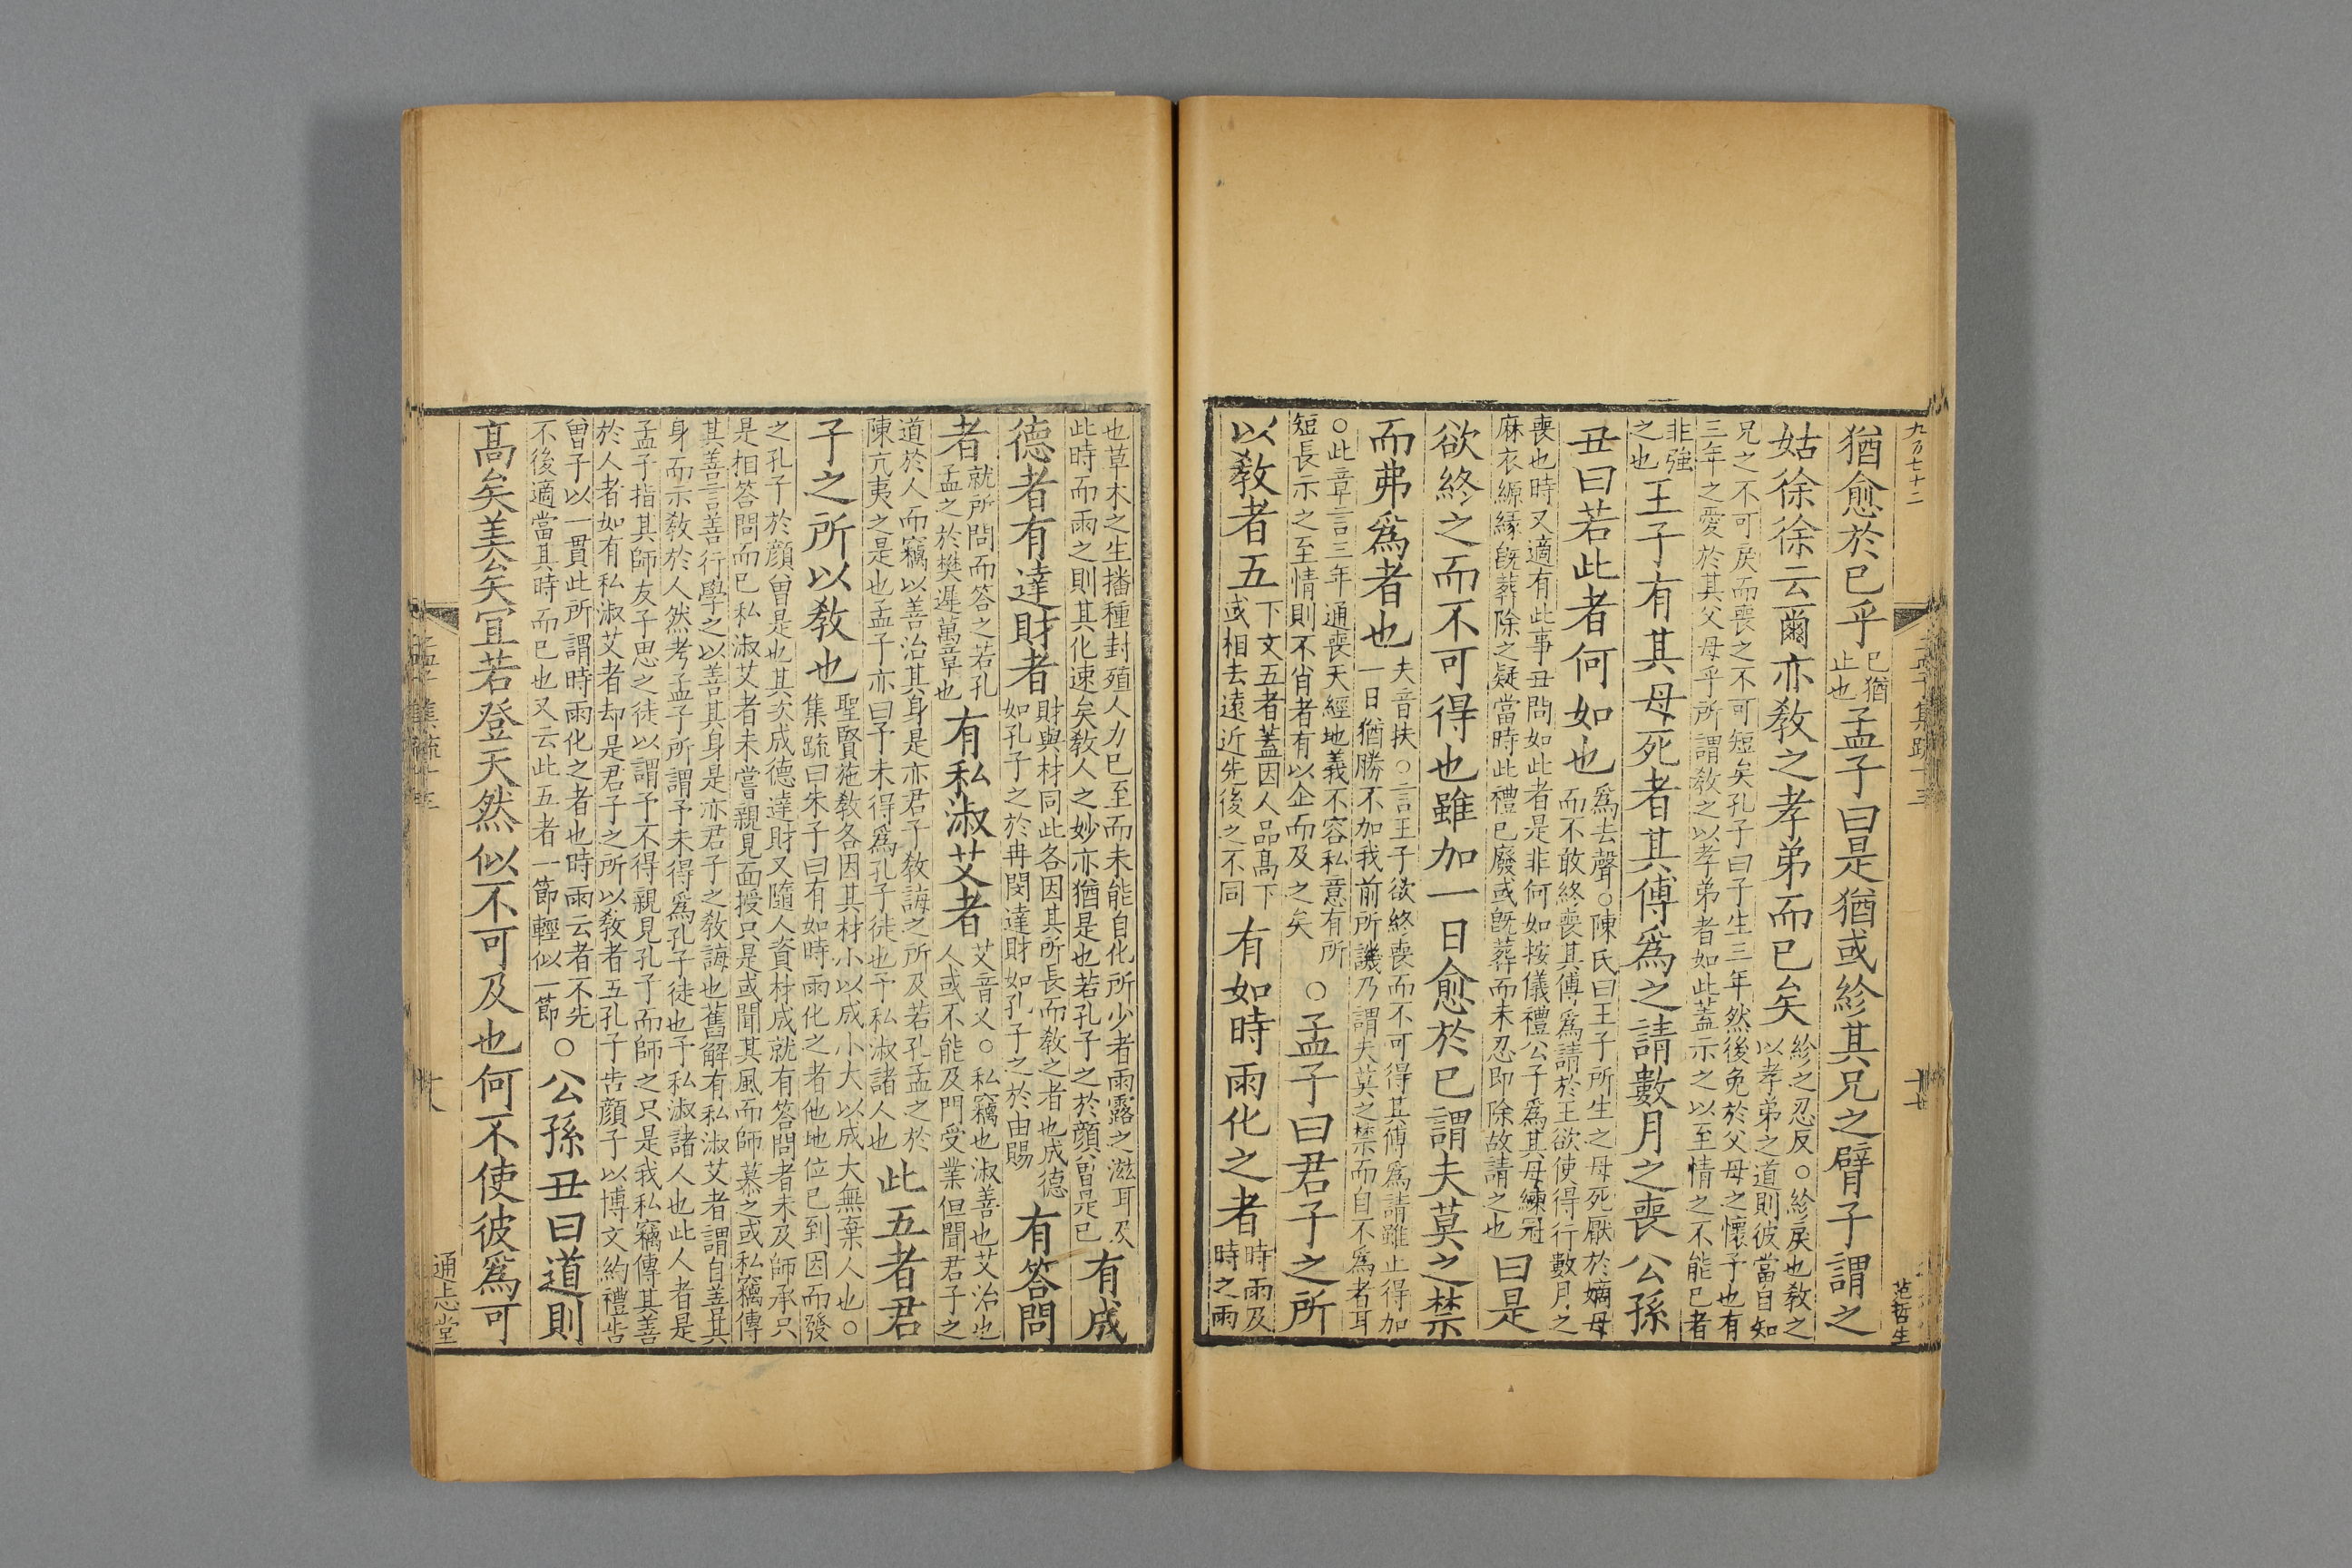 九百七十二
孟子集疏十三
十七
范哲生
猶愈於已乎已猶止也孟子曰是猶或紾其兄之臂子謂之
姑徐徐云爾亦敎之孝弟而已矣紾之忍反○紾戾也敎之以孝弟之道則彼當自知
兄之不可戾而喪之不可短矣孔子曰子生三年然後免於父母之懷予也有三年之愛於其父母乎所謂敎之以孝弟者如此蓋示之以至情之不能已者
非強之也王子有其母死者其傅爲之請數月之喪公孫
丑曰若此者何如也爲去聲○陳氏曰王子所生之母死厭於嫡母而不敢終喪其傅爲請於王欲使得行數月之
喪也時又適有此事丑問如此者是非何如按儀禮公子爲其母練冠麻衣縓緣旣葬除之疑當時此禮已廢或旣葬而未忍即除故請之也曰是
欲終之而不可得也雖加一日愈於已謂夫莫之禁
而弗爲者也夫音扶○言王子欲終喪而不可得其傅爲請雖止得加一日猶勝不加我前所譏乃謂夫莫之禁而自不爲者耳
○此章言三年通喪天經地義不容私意有所短長示之至情則不肖者有以企而及之矣○孟子曰君子之所
以敎者五下文五者蓋因人品高下或相去遠近先後之不同有如時雨化之者時雨及時之雨
也草木之生播種封殖人力已至而未能自化所少者雨露之滋耳及此時而雨之則其化速矣敎人之妙亦猶是也若孔子之於顔曾是已有成
德者有達財者財與材同此各因其所長而敎之者也成德如孔子之於冉閔達財如孔子之於由賜有答問
者就所問而答之若孔孟之於樊遲萬章也有私淑艾者艾音乂○私竊也淑善也艾治也人或不能及門受業但聞君子之
道於人而竊以善治其身是亦君子敎誨之所及若孔孟之於陳亢夷之是也孟子亦曰予未得爲孔子徒也予私淑諸人也此五者君
子之所以敎也聖賢施敎各因其材小以成小大以成大無棄人也○集疏曰朱子曰有如時雨化之者他地位已到因而發
之孔子於顔曾是也其次成德達財又隨人資材成就有答問者未及師承只是相答問而已私淑艾者未嘗親見面授只是或聞其風而師慕之或私竊傳
其善言善行學之以善其身是亦君子之敎誨也舊解有私淑艾者謂自善其身而示敎於人然考孟子所謂予未得爲孔子徒也予私淑諸人也此人者是
孟子指其師友子思之徒以謂予不得親見孔子而師之只是我私竊傳其善於人者如有私淑艾者却是君子之所以敎者五孔子告顔子以博文約禮告
曾子以一貫此所謂時雨化之者也時雨云者不先不後適當其時而已也又云此五者一節輕似一節○公孫丑曰道則
高矣美矣宜若登天然似不可及也何不使彼爲可
孟子集疏十三
十八
通志堂